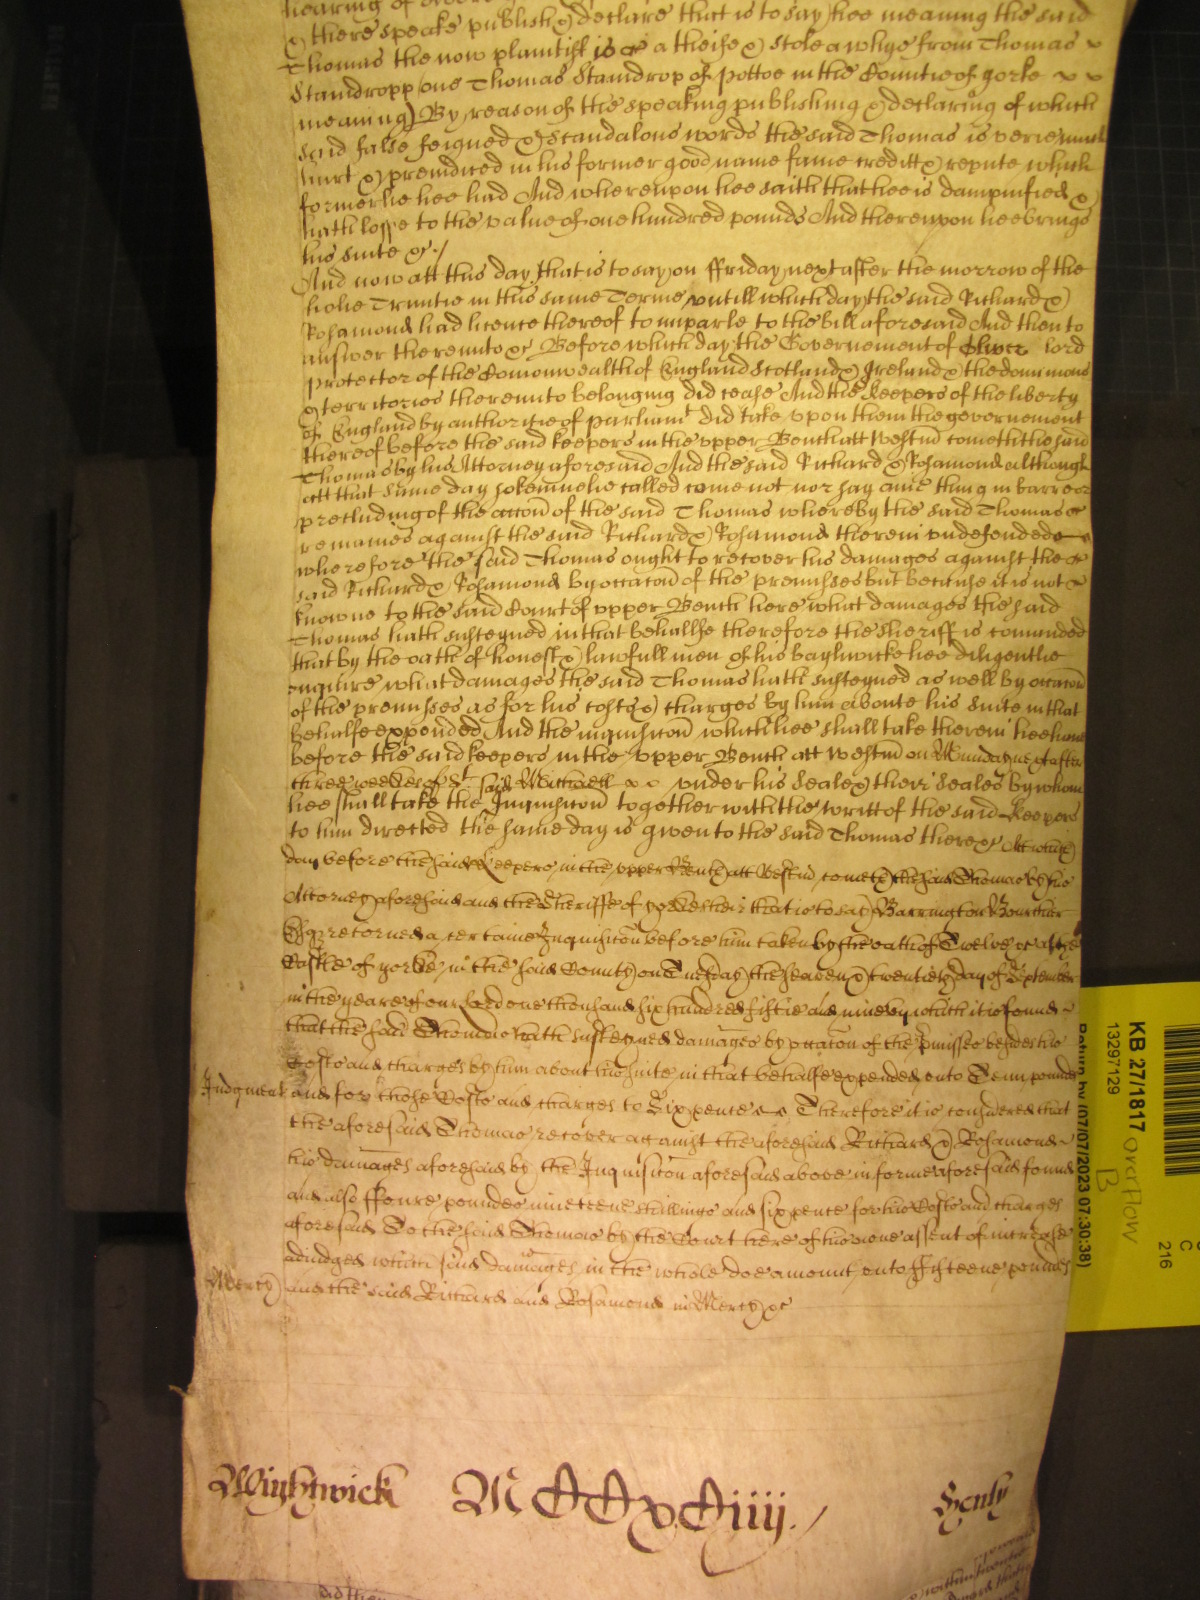 hearing of
& there speake publish & declare that is to say hee meaning the said
Thomas the now plaintiff is a theife & stole a whye from Thomas
Standropp one Thomas Standrop of pottoe in the Countie of yorke
meaning) By reason of the speaking publishing & declaring of which
said false feigned & scandalous words the said Thomas is verie much
hurt & preiudiced in his former good name fame creditt & repute which
formerlie hee had And whereupon hee saith that hee is dampnified &
hath losse to the value of one hundred pounds And thereupon hee brings
his suite &c /
And now att this day that is to say on ffriday next after the morrow of the
holie Trinitie in this same Terme untill which day the said Richard &
Rosamond had licence thereof to imparle to the bill aforesaid And then to
answer thereunto &c Before which day the Governement of Oliver lord
protector of the Comonwealth of England Scotland & Ireland & the dominions
& territories thereunto belonging did cease And the keepers of the liberty
of England by authoritie of parliamt did take upon them the governement
thereof before the said keepers in the upper Bench att Westm cometh the said
Thomas by his Attorney aforesaid And the said Richard & Rosamond although
att that same day solemnelie called come not nor say anie thing in barre or
precluding of the accon of the said Thomas whereby the said Thomas
remaines against the said Richard & Rosamond therein undefended
wherefore the said Thomas ought to recover his damages against the
said Richard & Rosamond by occacon of the premisses but because it is not
knowne to the said Court of upper Bench here what damages the said
Thomas hath susteyned in that behallfe therefore the sheriff is comanded
that by the oath of honest & lawfull men of his baylywicke hee diligentlie
enquire what damages the said Thomas hath susteyned as well by occacon
of the premisses as for his costs & charges by him aboute his suite in that
behalfe expended And the inquisicon which hee shall take therein hee have
before the said keepers in the upper Bench att Westm on Munday next after
three weekes of St Michaell under his seale & their seales by whom
hee shall take the Inquisicon together with the writt of the said keepers
to him directed the same day is given to the said Thomas there &c Att which
day before the said Keepers in the upper Bench att Westm cometh the said Thomas by his
Attorney aforesaid and the Sheriffe of yorkesheir that is to say Barrington Bourchier
Esqr retorned a certaine Inquisicon before him taken by the oath of Twelve &c att the
Castle of yorke in the said County on Tuesday the seaven & twentieth day of September
in the yeare of our Lord one thousand six hundred fiftie and nine by which it is found
that the said Thomas hath susteyned damages by occacon of the pmisses besides his
Costs and charges by him about his suite in that behalfe expended unto Tenn pounds
Judgment and for those Costs and charges to Sixpence Therefore it is considered that
the aforesaid Thomas recover against the aforesaid Richard & Rosamond
his damages aforesaid by the Inquisicon aforesaid above in forme aforesaid found
and also ffoure poundes nineteene shillings and sixpence for his Costs and charges
aforesaid To the said Thomas by the Court here of his owne assent of increase
adiudged which said damages in the whole doe amount unto ffifteene pounds
Mercy and the said Richard and Rosamond in Mercy &c
Wightwick
KB 27/1817
13297129
Return by (07/07/2023 07:30:38)
overflow
B
C
216